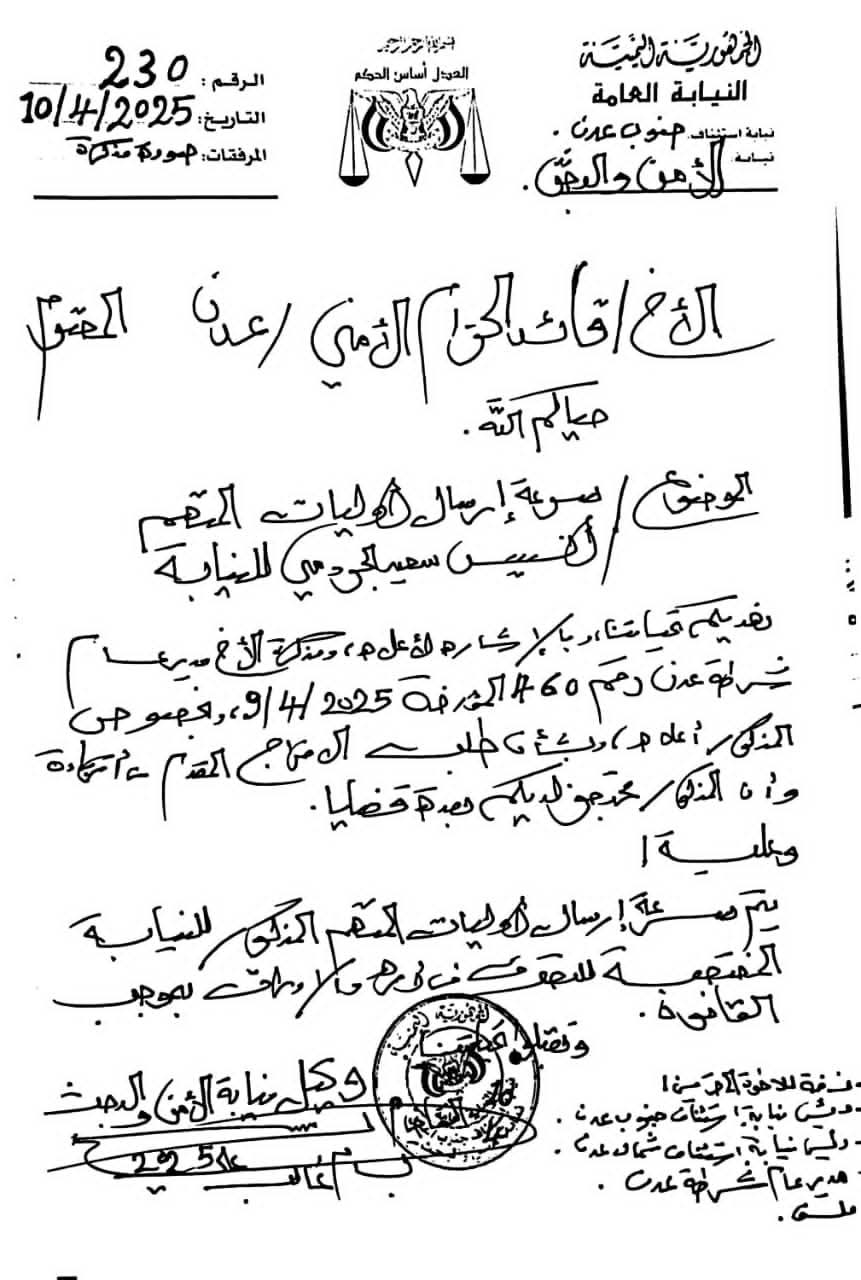 الجمهورية اليمنية
النيابة العامة
نيابة استئناف: جنوب عدن.
نيابة: الأمن والبحث.
بسم الله الرحمن الرحيم
العدل أساس الحكم
الرقم: 230
التاريخ: 10/4/2025
المرفقات: صورة مذكرة
الأخ / قائد الحزام الأمني / عدن المحترم
حياكم الله.
الموضوع / سرعة إرسال أوليات المتهم
/ أنيس سعيد الجردمي للنيابة
نهديكم تحياتنا، وبالإشارة لأعلاه، ومذكرة الأخ مدير عام
شرطة عدن رقم 460 المؤرخة 9/4/2025، وبخصوص
المذكور أعلاه، وبشأن طلب الإفراج المقدم من
وأن المذكور محتجز لديكم بعدة قضايا.
وعليه /
يتم سرعة إرسال أوليات المتهم المذكور للنيابة
المختصة للتصرف في أمره والأوراق بموجب
القانون.
وتقبلوا تحياتنا
وكيل نيابة الأمن والبحث
نسخة للإخوة المحترمين /
رئيس نيابة استئناف جنوب عدن.
رئيس نيابة استئناف شمال عدن.
مدير عام شرطة عدن.
ملف.